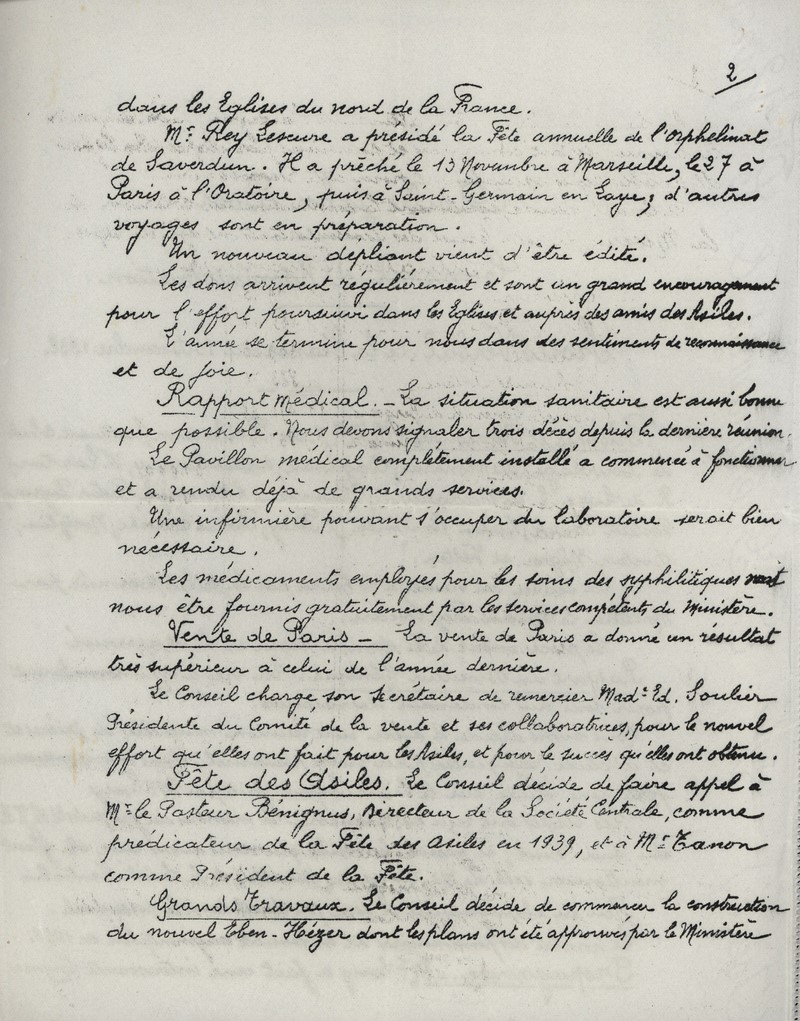 2
dans les Eglises du nord de la France.
Mr Rey Lescure a présidé la Fête annuelle de l'Orphelinat
de Saverdun. Il a prêché le 13 Novembre à Marseille, le 27 à
Paris à l'Oratoire, puis à Saint-Germain en Laye; d'autres
voyages sont en préparation.
Un nouveau dépliant vient d'être édité.
Les dons arrivent régulièrement et sont un grand encouragement
pour l'effort poursuivi dans les Eglises et auprès des amis des Asiles.
L'année se termine pour nous dans des sentiments de reconnaissance
et de joie.
Rapport médical. - La situation sanitaire est aussi bonne
que possible. Nous devons signaler trois décès depuis la dernière réunion.
Le Pavillon médical complètement installé a commencé à fonctionner
et a rendu déjà de grands services.
Une infirmière pouvant s'occuper du laboratoire serait bien
nécessaire.
Les médicaments employés pour les soins des syphilitiques vont
nous être fournis gratuitement par les services compétents du Ministère.
Vente de Paris - La vente de Paris a donné un résultat
très supérieur à celui de l'année dernière.
Le Conseil charge son Secrétaire de remercier Made Ed. Soulier
Présidente du Comité de la vente et ses collaboratrices, pour le nouvel
effort qu'elles ont fait pour les Asiles, et pour le succès qu'elles ont obtenu.
Fête des Asiles. Le Conseil décide de faire appel à
Mr le Pasteur Bénignus, Directeur de la Société Centrale, comme
prédicateur de la Fête des Asiles en 1939, et à Mr Tanon
comme Président de la Fête.
Grands Travaux. Le Conseil décide de commencer la construction
du nouvel Eben-Hézer dont les plans ont été approuvés par le Ministère